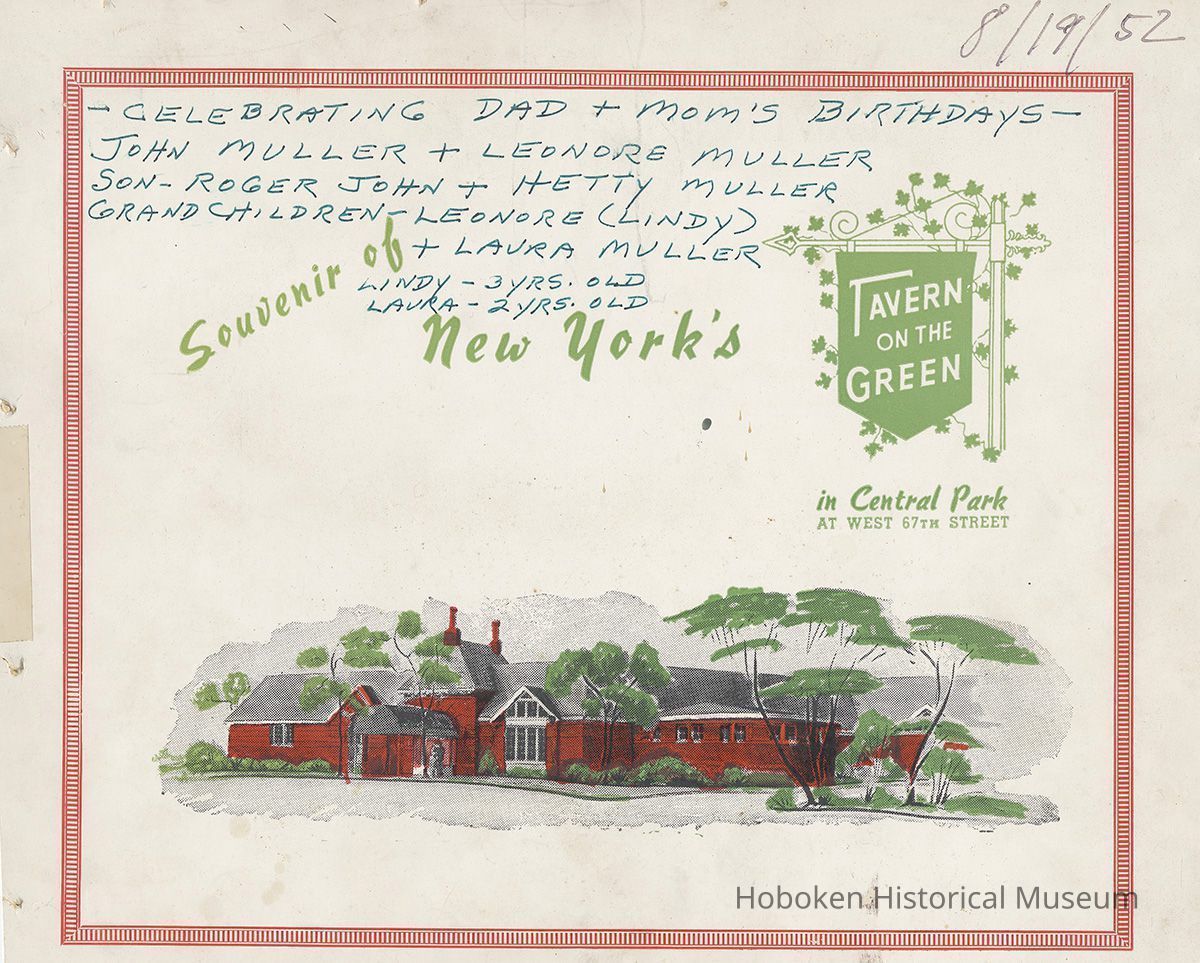 8/19/52
- CELEBRATING DAD + MOM'S BIRTHDAYS -
JOHN MULLER + LEONORE MULLER
SON - ROGER JOHN + HETTY MULLER
GRANDCHILDREN - LEONORE (LINDY)
+ LAURA MULLER
LINDY - 3 YRS. OLD
LAURA - 2 YRS. OLD
Souvenir of
New York's
TAVERN
ON THE
GREEN
in Central Park
AT WEST 67TH STREET
Hoboken Historical Museum